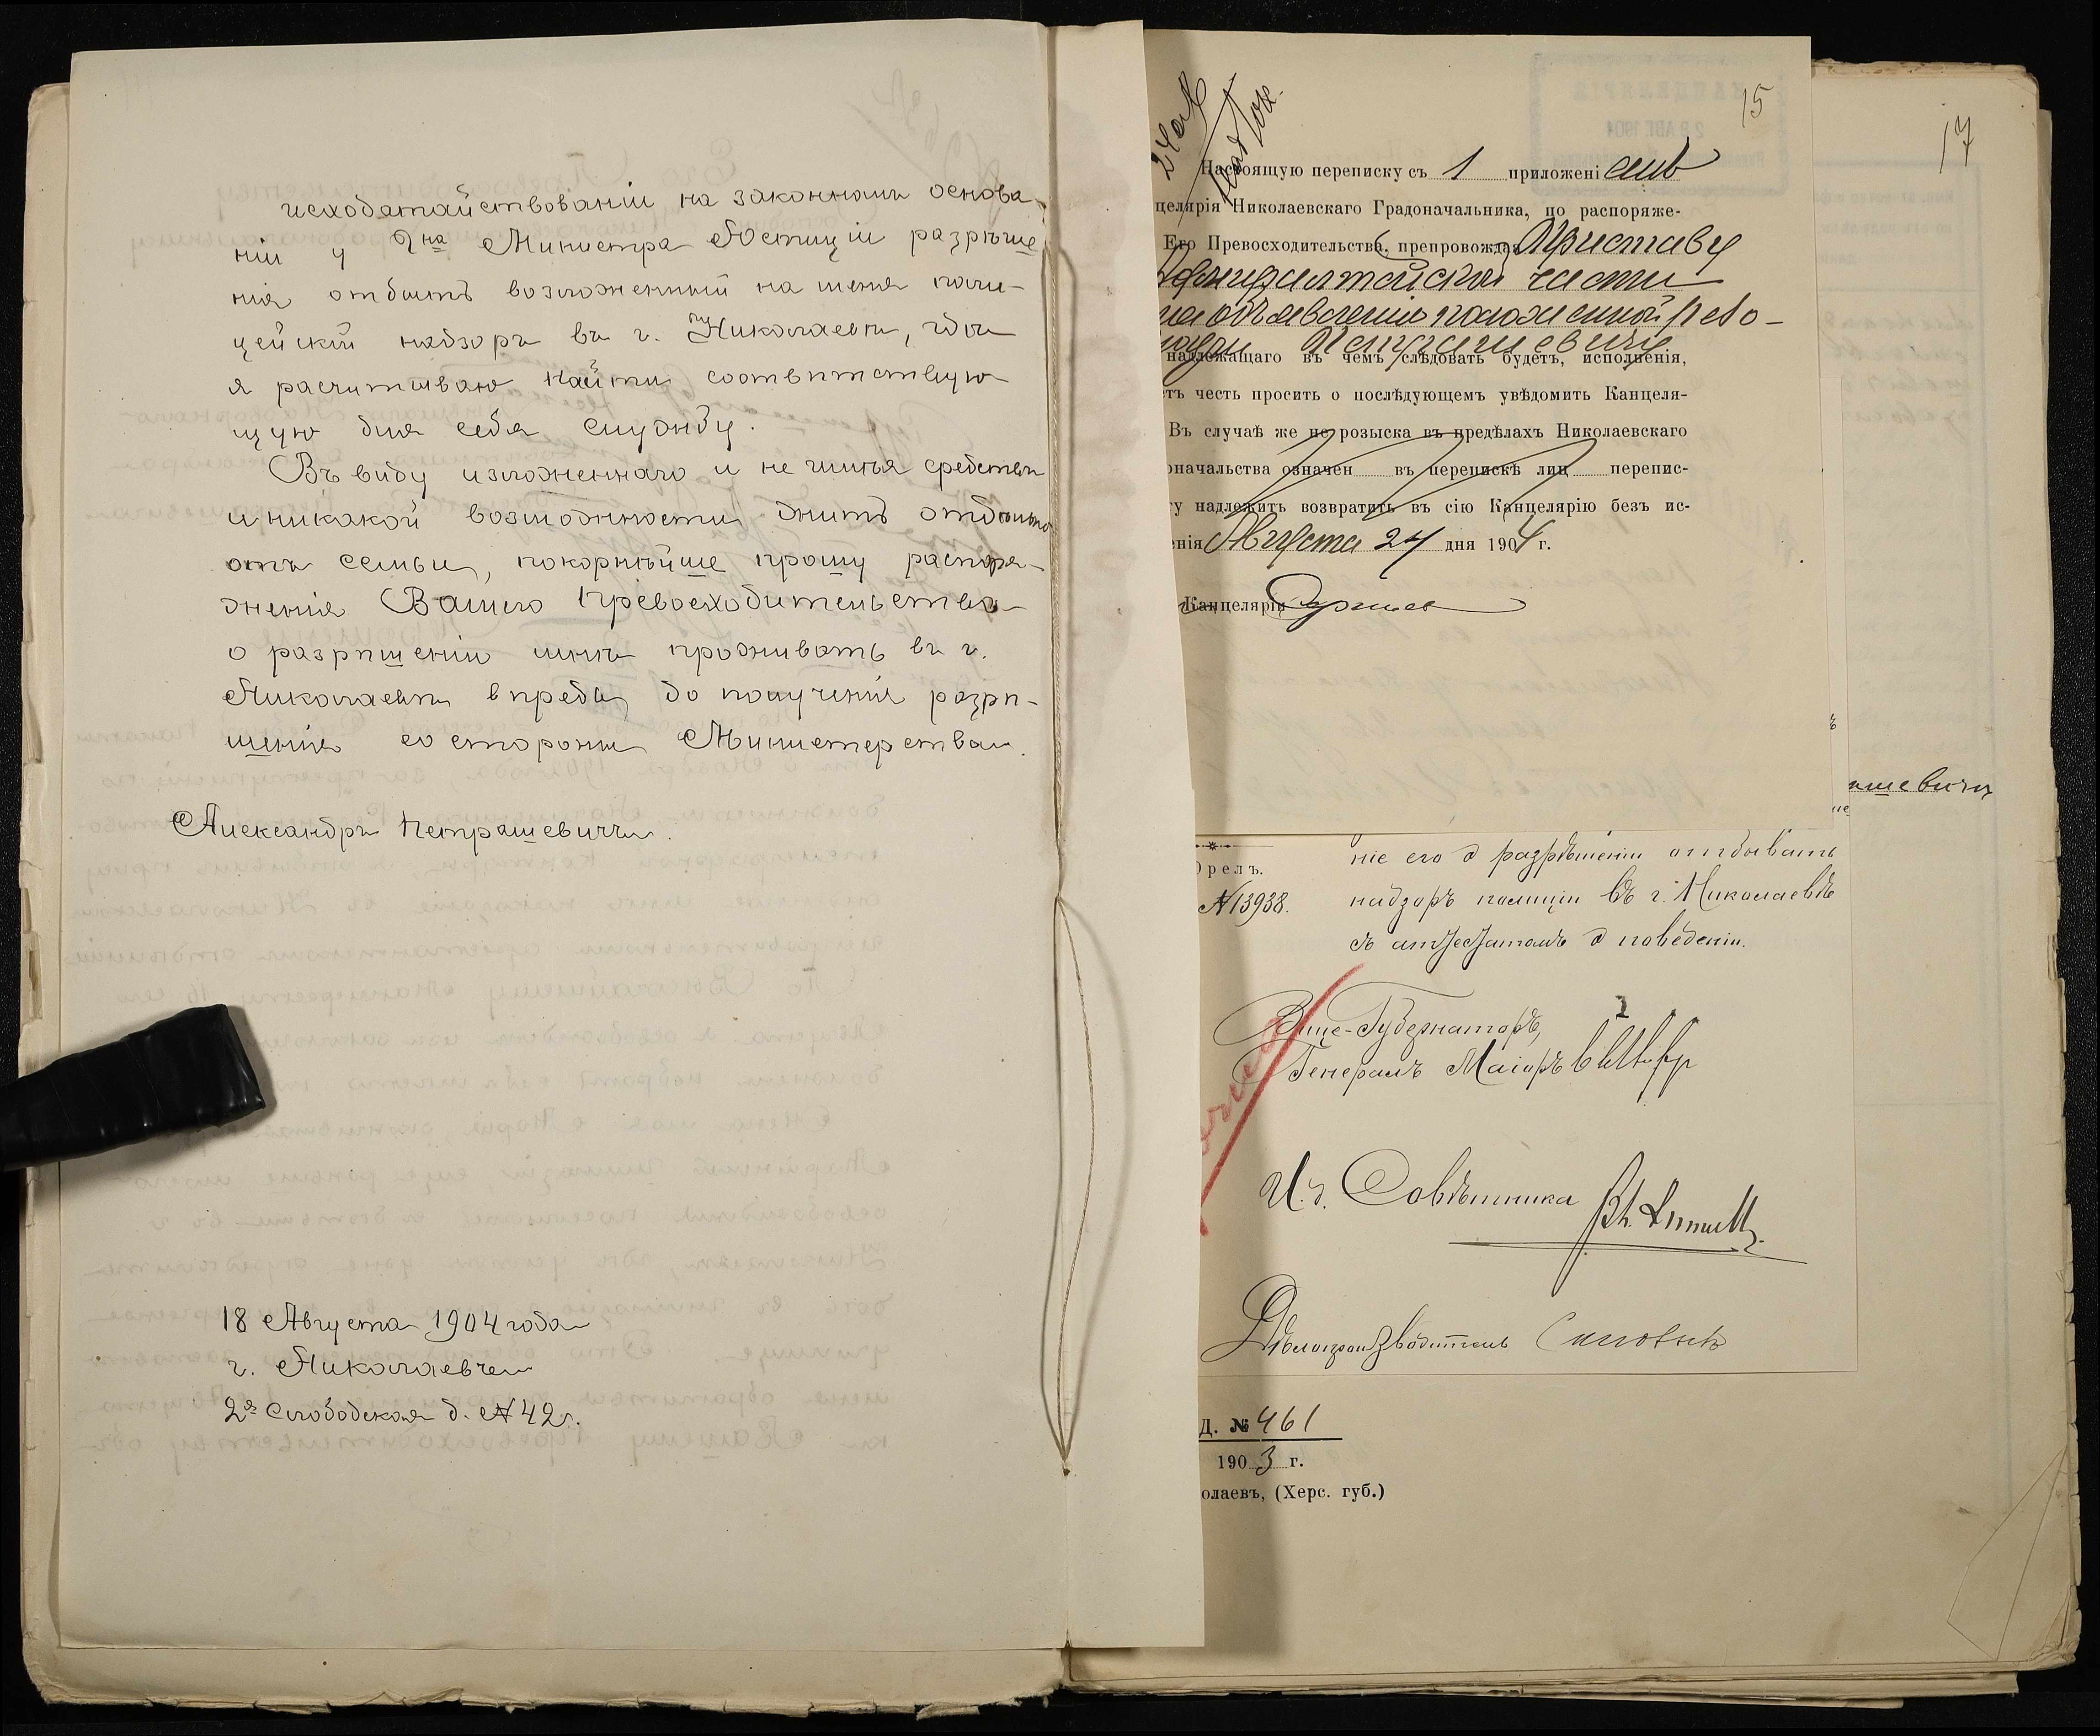 исходатайствованіи на законномъ основа-
ніи у Гна Министра Юстиціи разрѣше
нія отбыть возложенный на меня поли-
цейскій надзоръ въ г. Николаевѣ, гдѣ
я расчитываю найти соотвѣтствую-
щую для себя службу.
Въ виду изложеннаго и не имѣя средствъ
и никакой возможности жить отдѣльно
отъ семьи, покорнѣйше прошу распоря-
женія Вашего Превосходительства
о разрѣшеніи мнѣ проживать въ г.
Николаевѣ впредь до полученія разрѣ-
шенія со стороны Министерства.
Александръ Петрашевичъ.
18 Августа 1904 года
г. Николаевъ
2я Слободская д. №42.
15
Настоящую переписку съ 1 приложені емъ
целярія Николаевскаго Градоначальника, по распоряже-
Его Превосходительства, препровождая Приставу
Адмиралтейской части
на объявленіе положенной резо-
Петрашевичу
надлежащаго въ чемъ слѣдовать будетъ, исполненія,
етъ честь просить о послѣдующемъ увѣдомить Канцеля-
Въ случаѣ же не розыска въ предѣлахъ Николаевскаго
оначальства означен въ перепискѣ лиц перепис-
у надлежитъ возвратить въ сію Канцелярію безъ ис-
енія Августа 24 дня 1904 г.
Канцеляріи
17
ашевичъ
Орелъ.
№13938.
ніе его о разрѣшеніи отбывать
надзоръ полиціи въ г. Николаевѣ
съ аттестатомъ о поведеніи.
Вице-Губернаторъ,
Генералъ Маіоръ
И. д. Совѣтника
Дѣлопроизводитель
Д. № 461
1903 г.
олаевъ, (Херс. губ.)